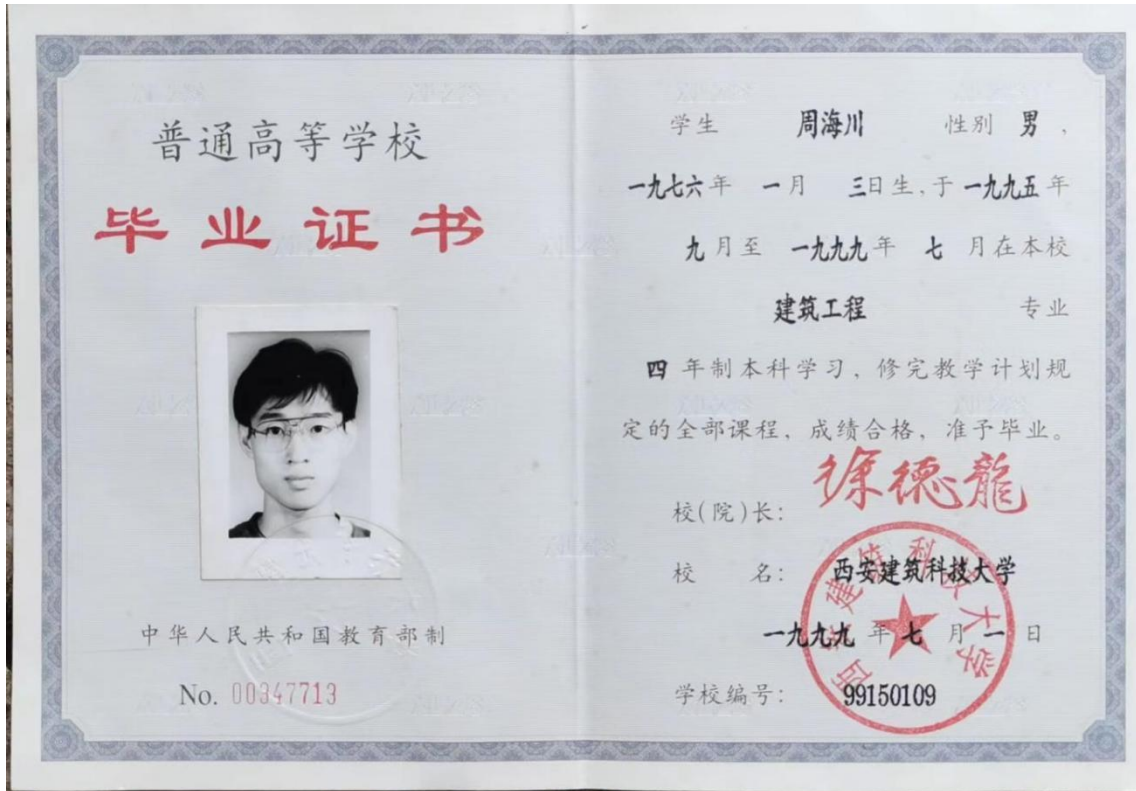 普通高等学校
毕业证书
中华人民共和国教育部制
No. 00347713
学生 周海川 性别 男,
一九七六年 一月 三日生,于一九九五年
九月至 一九九九年 七 月在本校
建筑工程 专业
四 年制本科学习，修完教学计划规
定的全部课程，成绩合格，准予毕业。
校(院)长: 徐德龍
校 名: 西安建筑科技大学
一九九九 年 七 月 一 日
学校编号: 99150109
西安建筑科技大学